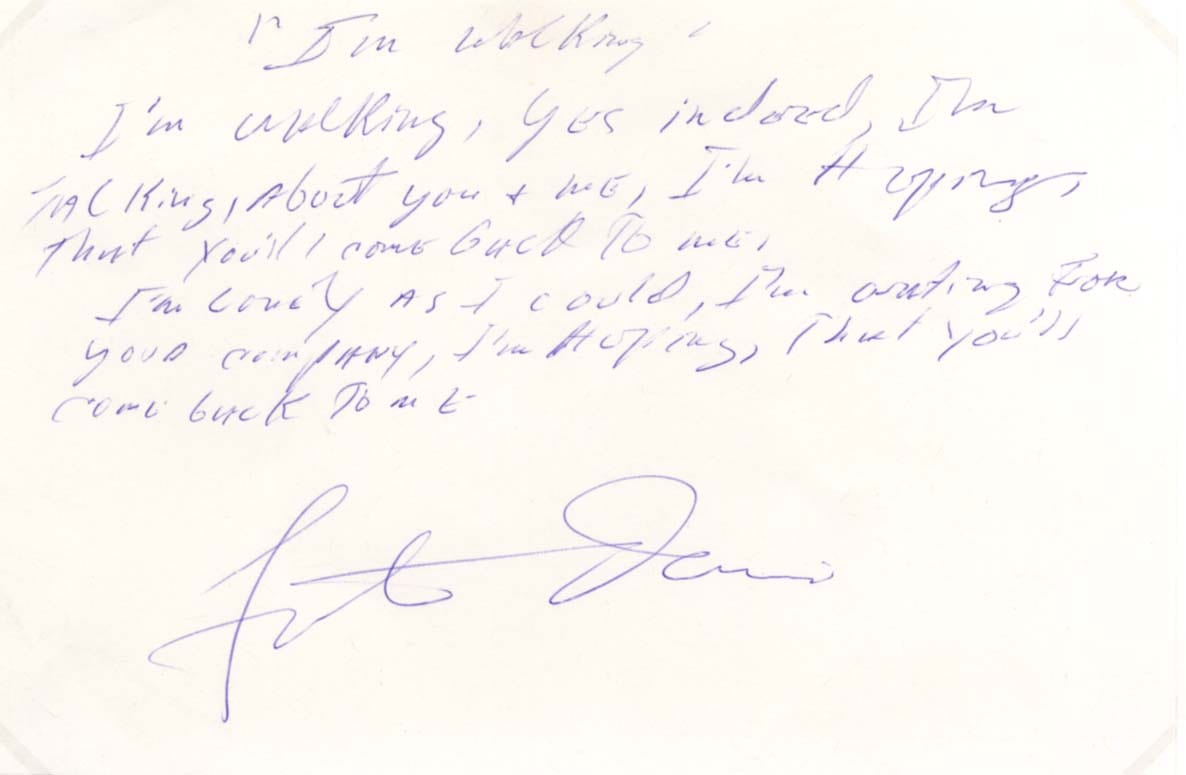 "I'm walking"
I'm walking, Yes indeed, I'm
Talking, About you + me, I'm Hoping,
That you'll come back To me,
I'm lonely As I could, I'm waiting For
your company, I'm Hoping, That you'll
come back To me